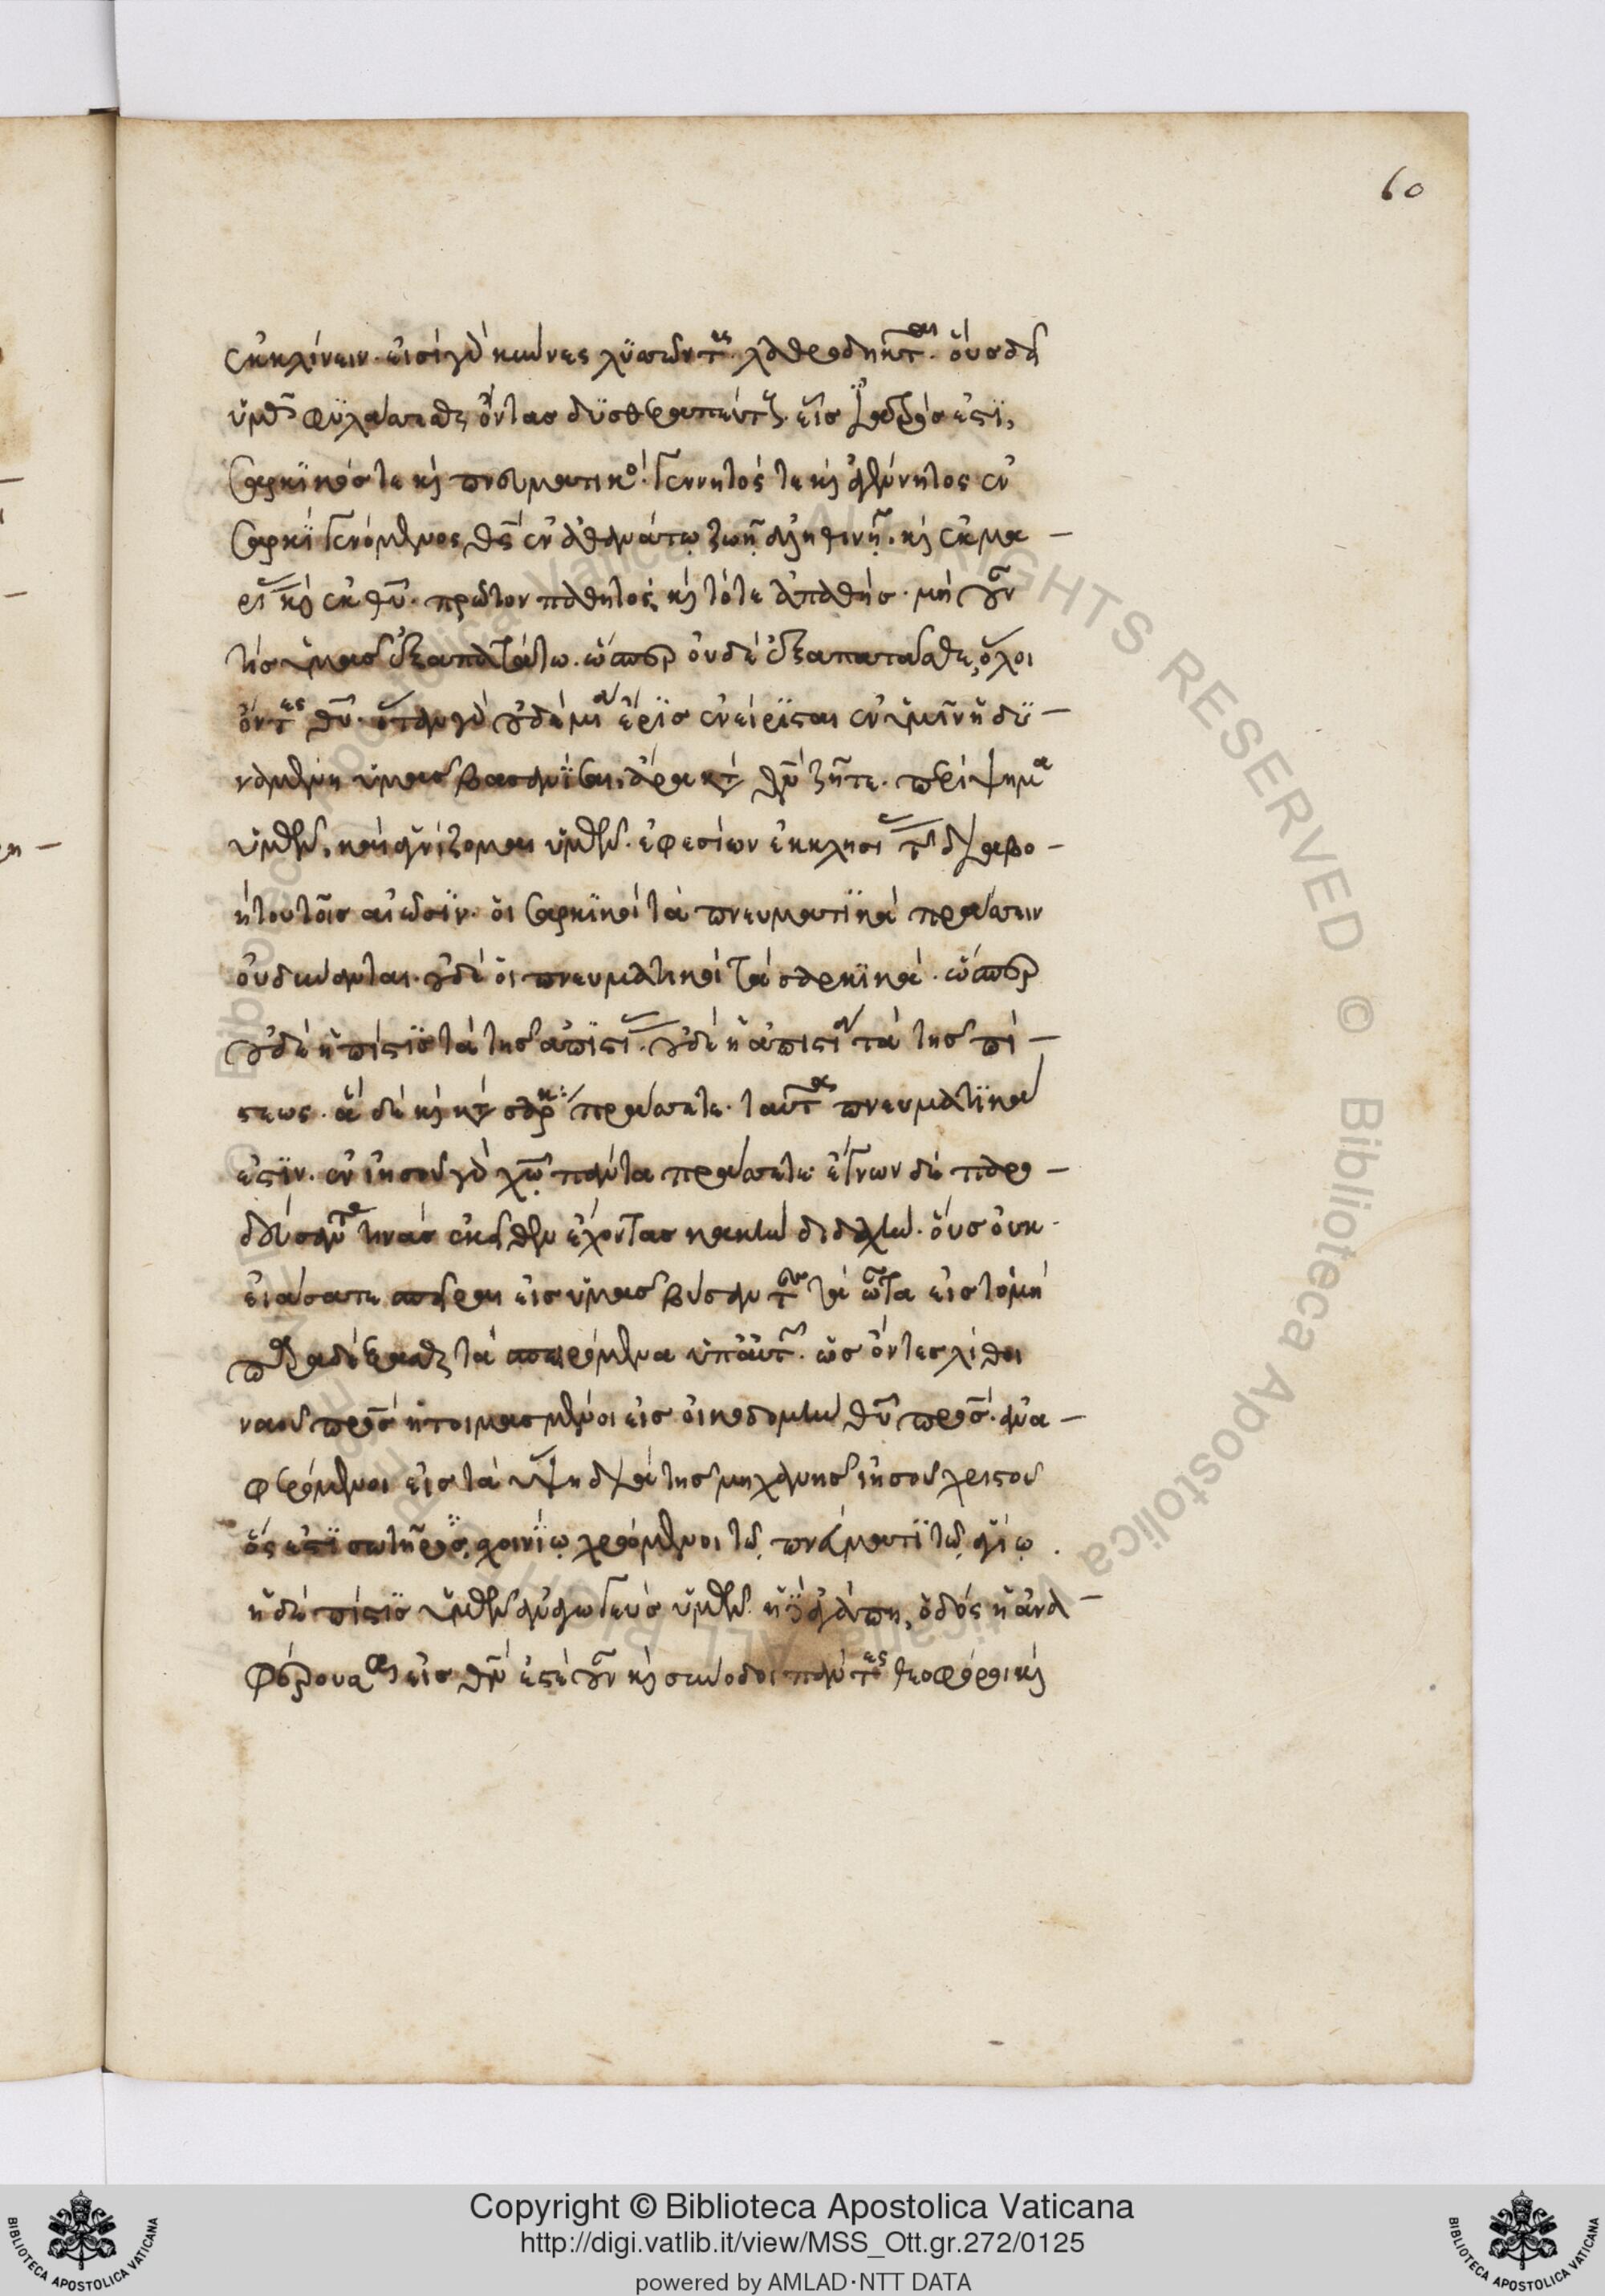 ἐκκλίνειν. εἰσὶ γὰρ κύνες λυσσῶντες. λαθροδῆκται. οὓς δεῖ
ὑμᾶς φυλάσσεσθαι ὄντας δυσθεραπεύτους. εἷς ἰατρός ἐστϊ,
σαρκϊκός τε καὶ πνευματικός. γεννητός τε καὶ ἀγέννητος ἐν
σαρκὶ γενόμενος θς ἐν ἀθανάτῳ ζωῇ ἀληθινῇ. καὶ ἐκ μα–
ρίας καὶ ἐκ θυ. πρῶτον παθητός, καὶ τότε ἀπαθής. μὴ οὖν
τὶς ὑμᾶς ἐξαπατάτω. ὥσπερ οὐδὲ ἐξαπατᾶσθε, ὅλοι
ὄντες θυ. ὅταν γὰρ οὐδὲ μία ἔρϊς ἐνείρϊσται ἐν ὑμῖν ἡ δϋ–
ναμένη ὑμᾶς βασανίσαι. ἄρα κατὰ θν ζῆτε. περίψημα
ὑμῶν. καὶ ἁγνίζομαι ὑμῶν. ἐφεσίων ἐκκλησίας τῆς διαβο–
ήτου τοῖς αἰῶσϊν. οἱ σαρκϊκοὶ τὰ πνευματϊκὰ πράσσειν
οὐ δύνανται. οὐδὲ οἱ πνευματικοὶ τὰ σαρκϊκά. ὥσπερ
οὐδὲ ἡ πίστϊς τὰ τῆς ἀπϊστίας. οὐδὲ ἡ ἀπιστία τὰ τῆς πί–
στεως. ἃ δὲ καὶ κατὰ σάρκα πράσσετε. ταῦτα πνευματϊκά
ἐστϊν. ἐν ἰησοῦ γὰρ χω πάντα πράσσετε. ἔγνων δὲ παρο–
δεύσαντάς τινας ἐκεῖθεν ἔχοντας κακὴν διδαχήν. οὓς οὐκ
εἰάσατε σπεῖραι εἰς ὑμᾶς βύσαντες τὰ ὦτα εἰς τὸ μὴ
παραδέξασθαι τὰ σπειρόμενα ὑπ' αὐτῶν. ὡς ὄντες λίθοι
ναοῦ πρς ἡτοιμασμένοι εἰς οἰκοδομὴν θυ πρς. ἀνα–
φερόμενοι εἰς τὰ ὕψη διὰ τῆς μηχανῆς ἰησοῦ χριστοῦ
ὅς ἐστϊ σωτῆρος, σχοινίῳ χρώμενοι τῷ πνεύματϊ τῷ ἁγίῳ.
ἡ δὲ πίστϊς ὑμῶν ἀναγωγεὺς ὑμῶν. ἡ δὲ ἀγάπη, ὁδός ἡ ἀνα–
φέρουσα εἰς θν ἐστὲ οὖν καὶ σύνοδοι πάντες θεοφόροι καὶ
60
Copyright © Biblioteca Apostolica Vaticana
http://digi.vatlib.it/view/MSS_Ott.gr.272/0125
powered by AMLAD·NTT DATA